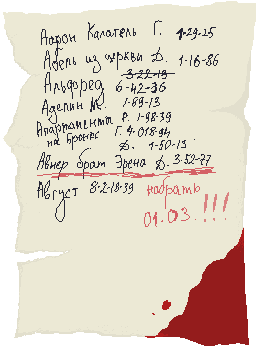 Аарон Калатель Г. 1-29-25
Адель из церкви Д. 1-16-86
3-22-19
Альфред 6-42-36
Аделин М. 1-89-13
Апартаменты Р. 1-98-39
на Бронкс Г. 4-018-94
Д. 1-50-13
Авнер брат Эрена Д. 3-52-77
Август 8-2-18-39 набрать
01.03.!!!